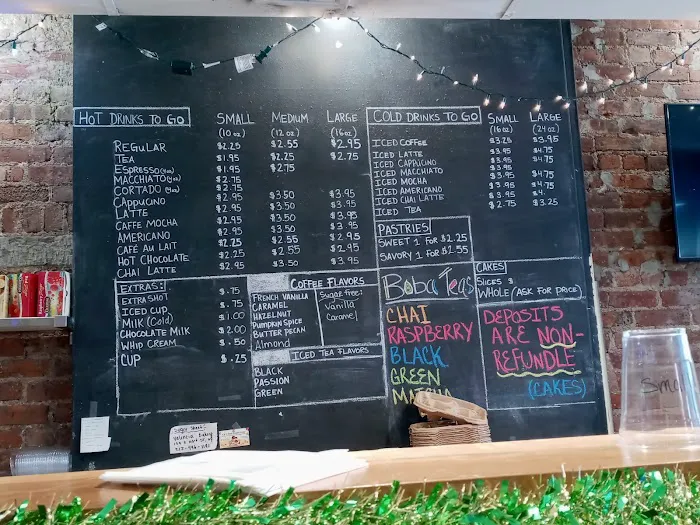 HOT DRINKS TO GO SMALL MEDIUM LARGE
(10 oz) (12 oz) (16 oz)
REGULAR $2.25 $2.55 $2.95
TEA $1.95 $2.25 $2.75
ESPRESSO $1.95 $2.75
MACCHIATO $2.75
CORTADO $2.75
CAPPUCINO $2.95 $3.50 $3.95
LATTE $2.95 $3.50 $3.95
CAFFE MOCHA $2.95 $3.50 $3.95
AMERICANO $2.95 $3.50 $3.95
CAFÉ AU LAIT $2.25 $2.55 $2.95
HOT CHOCOLATE $2.25 $2.55 $2.95
CHAI LATTE $2.95 $3.50 $3.95
COLD DRINKS TO GO SMALL LARGE
(16 oz) (24 oz)
ICED COFFEE $3.25 $3.95
ICED LATTE $3.95 $4.75
ICED CAPPUCINO $3.95 $4.75
ICED MACCHIATO $3.95
ICED MOCHA $3.95 $4.75
ICED AMERICANO $3.95 $4.75
ICED CHAI LATTE $3.95
ICED TEA $2.75 $3.25
PASTRIES
SWEET 1 FOR $2.25
SAVORY 1 FOR $2.55
EXTRAS:
EXTRA SHOT $.75
ICED CUP $.75
MILK (Cold) $1.00
CHOCOLATE MILK $2.00
WHIP CREAM $.50
CUP $.25
COFFEE FLAVORS
FRENCH VANILLA
CARAMEL
HAZELNUT
PUMPKIN SPICE
BUTTER PECAN
Almond
Sugar free:
Vanilla
Caramel
ICED TEA FLAVORS
BLACK
PASSION
GREEN
Boba Teas
CHAI
RASPBERRY
BLACK
GREEN
MATCHA
CAKES
SLICES $
WHOLE (ASK FOR PRICE)
DEPOSITS
ARE NON-
REFUNDLE
(CAKES)
Valencia Bakery